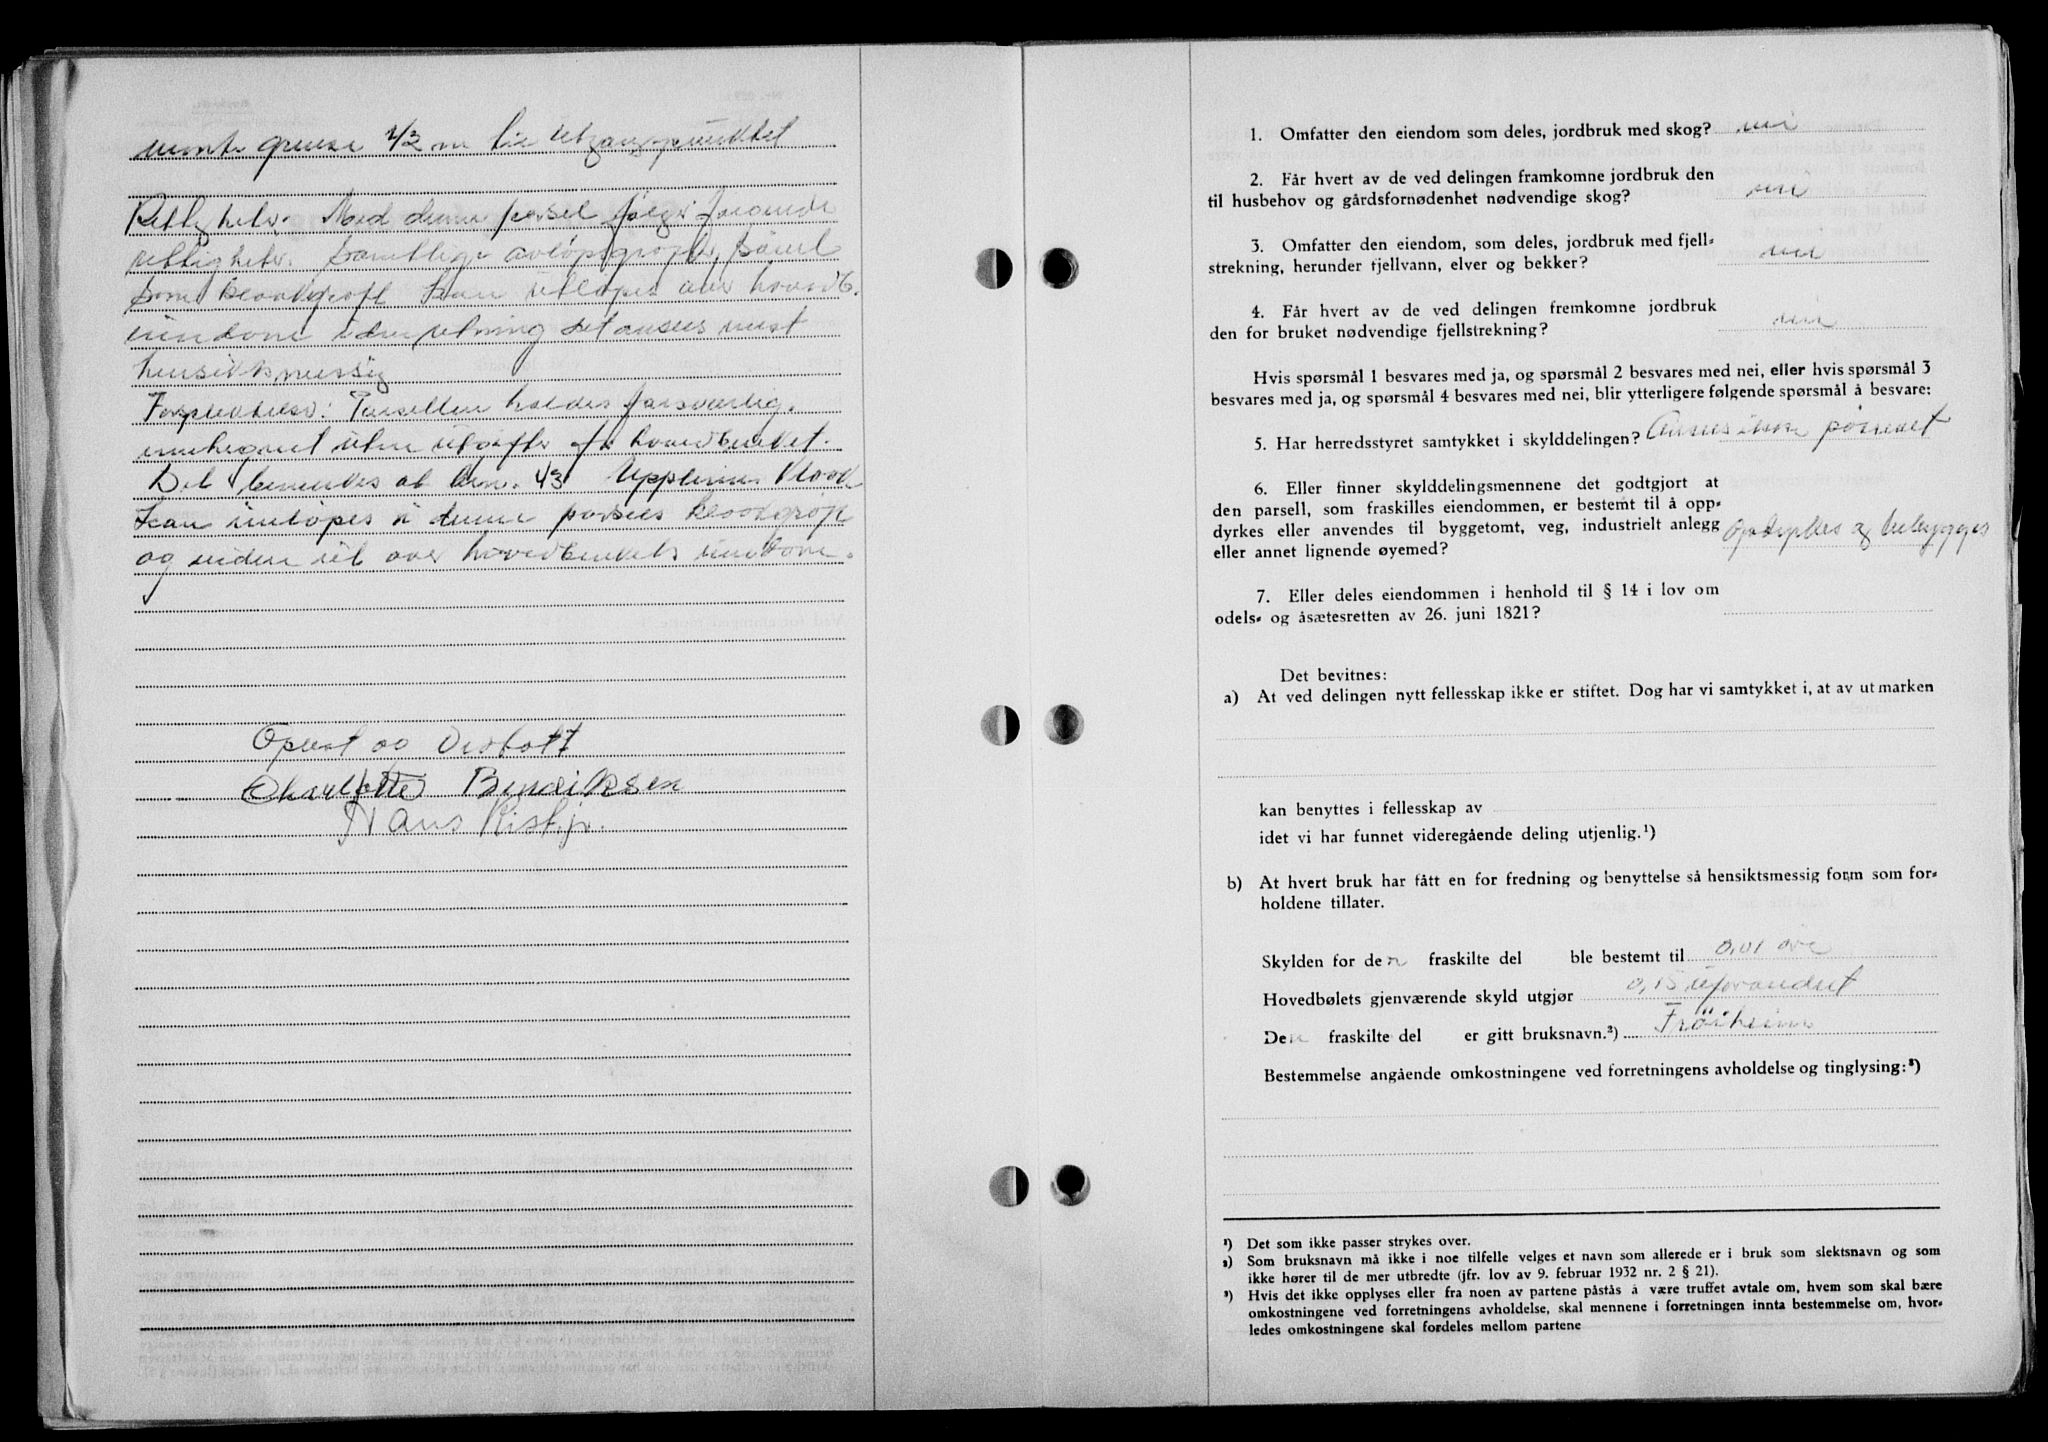 grense 43 m til utgangspunktet
Rettigheter. Med denne parsel følger
rettigheter. Samtlige avløpsgrøfter, såvel
som kloakgrøft kan utløpes over hovedb.
eiendom i den retning det ansees mest
hensiktsmessig
Forpliktelser: Parsellen holdes forsvarlig
innhegnet uten utgifter for hovedbruket.
Det bemerkes at br.n. 43 kloak
kan innløpes i denne parsels kloakgrøft
og videre ut over hovedbrukets eiendom.
Oplest og vedtatt
Charlotte Bendiksen
Hans Rist jr.
1. Omfatter den eiendom som deles, jordbruk med skog? nei
2. Får hvert av de ved delingen framkomne jordbruk den
til husbehov og gårdsfornødenhet nødvendige skog? nei
3. Omfatter den eiendom, som deles, jordbruk med fjell-
strekning, herunder fjellvann, elver og bekker? nei
4. Får hvert av de ved delingen fremkomne jordbruk
den for bruket nødvendige fjellstrekning? nei
Hvis spørsmål 1 besvares med ja, og spørsmål 2 besvares med nei, eller hvis spørsmål 3
besvares med ja, og spørsmål 4 besvares med nei, blir ytterligere følgende spørsmål å besvare:
5. Har herredsstyret samtykket i skylddelingen? Ansees ikke påkrevet
6. Eller finner skylddelingsmennene det godtgjort at
den parsell, som fraskilles eiendommen, er bestemt til å opp-
dyrkes eller anvendes til byggetomt, veg, industrielt anlegg
eller annet lignende øyemed? Opdyrkes og bebygges
7. Eller deles eiendommen i henhold til § 14 i lov om
odels- og åsætesretten av 26. juni 1821?
Det bevitnes:
a) At ved delingen nytt fellesskap ikke er stiftet. Dog har vi samtykket i, at av utmarken
kan benyttes i fellesskap av
idet vi har funnet videregående deling utjenlig.¹)
b) At hvert bruk har fått en for fredning og benyttelse så hensiktsmessig form som for-
holdene tillater.
Skylden for den fraskilte del ble bestemt til 0,01 øre
Hovedbølets gjenværende skyld utgjør 0,15 uforandret
Den fraskilte del er gitt bruksnavn.²) Fröiheim
Bestemmelse angående omkostningene ved forretningens avholdelse og tinglysing:³)
¹) Det som ikke passer strykes over.
²) Som bruksnavn må ikke i noe tilfelle velges et navn som allerede er i bruk som slektsnavn og som
ikke hører til de mer utbredte (jfr. lov av 9. februar 1932 nr. 2 § 21).
³) Hvis det ikke opplyses eller fra noen av partene påstås å være truffet avtale om, hvem som skal bære
omkostningene ved forretningens avholdelse, skal mennene i forretningen innta bestemmelse om, hvor-
ledes omkostningene skal fordeles mellom partene